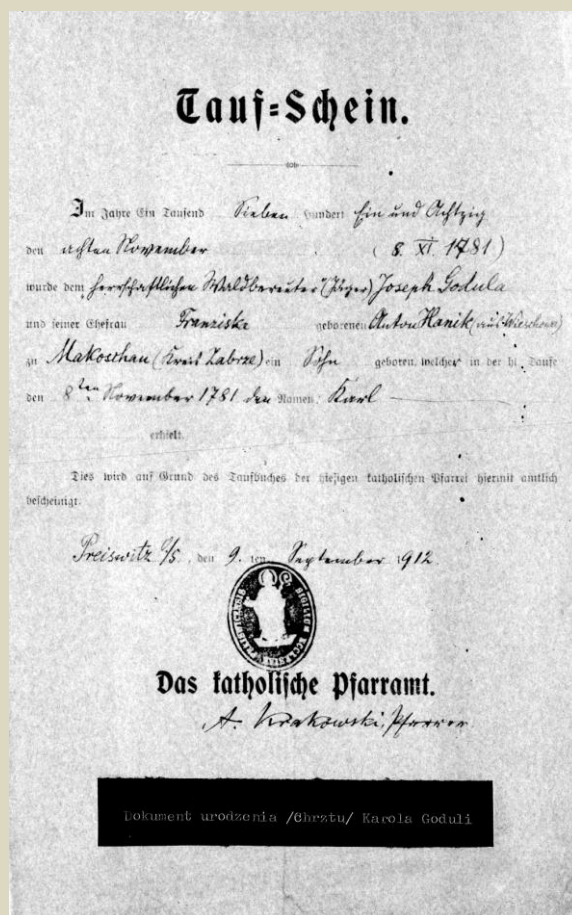 Tauf=Schein.
Im Jahre Ein Tausend Sieben hundert Ein und Achtzig
den achten November (8. XI. 1781)
wurde dem herrschaftlichen Waldbereuter (Jäger) Joseph Godula
und seiner Ehefrau Franziska geborenen Anton Hanik (aus Wieschowa)
zu Makoschau (Kreis Zabrze) ein Sohn geboren, welcher in der hl. Taufe
den 8ten November 1781 den Namen Karl
erhielt.
Dies wird auf Grund des Taufbuches der hiesigen katholischen Pfarrei hiermit amtlich
bescheinigt.
Preiswitz O/S, den 9. ten September 1912
SIGILLUM
Das katholische Pfarramt.
A. Krakowski, Pfarrer.
Dokument urodzenia /Chrztu/ Karola Goduli